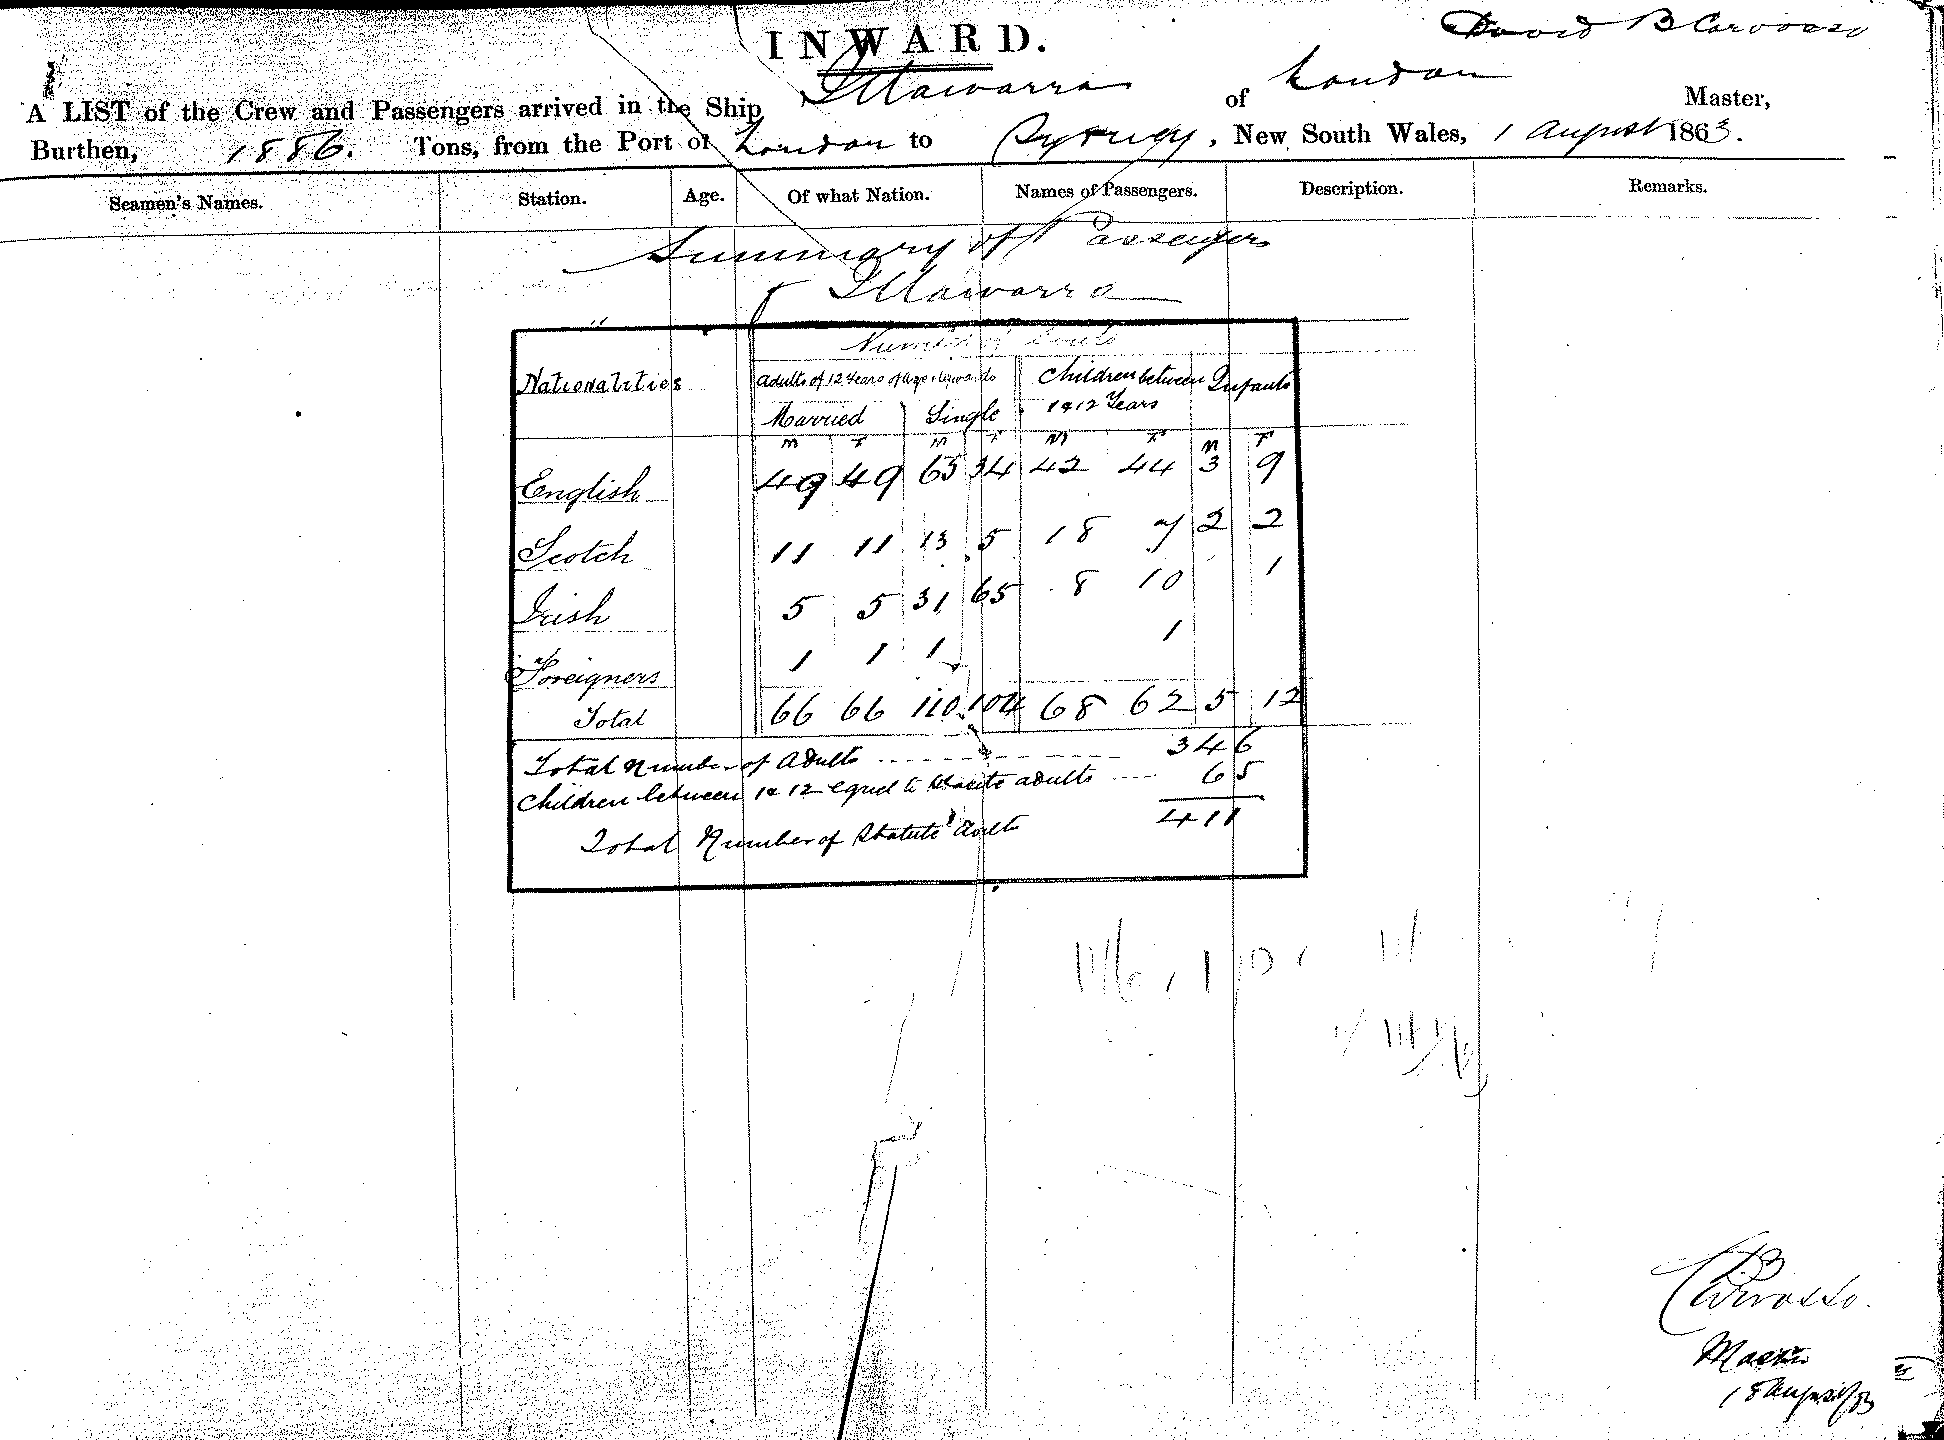 INWARD.
David B Carvosso
A LIST of the Crew and Passengers arrived in the Ship Illawarra of London Master,
Burthen, 1886. Tons, from the Port of London to Sydney, New South Wales, 1 August 1863.
Seamen's Names. Station. Age. Of what Nation. Names of Passengers. Description. Remarks.
Summary of Passengers
Illawarra
Number of Souls
Nationalities Adults of 12 Years of age & upwards Children between Infants
Married Single 1 & 12 Years
M F M F M F M F
English 49 49 65 34 42 44 3 9
Scotch 11 11 13 5 18 7 2 2
Irish 5 5 31 65 8 10 1
Foreigners 1 1 1 1
Total 66 66 110 104 68 62 5 12
Total Number of Adults 346
Children between 1 & 12 equal to Statute adults 65
Total Number of Statute Adults 411
Carvosso.
Master